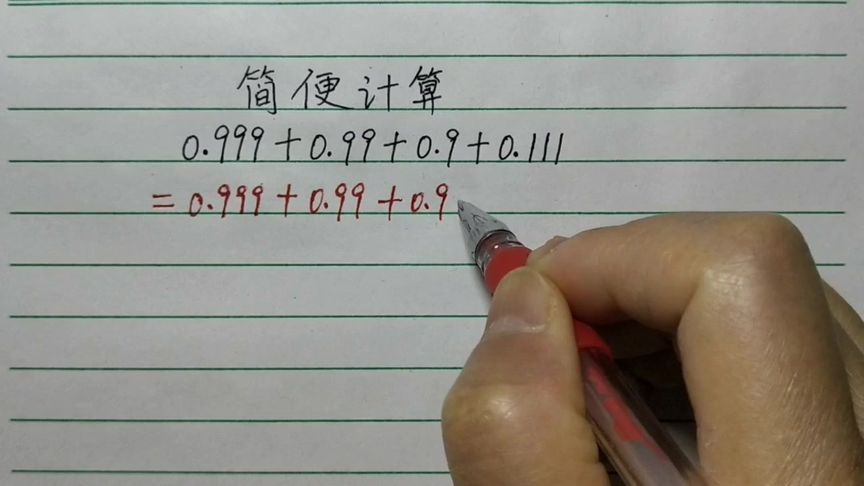 简便计算
0.999+0.99+0.9+0.111
=0.999+0.99+0.9